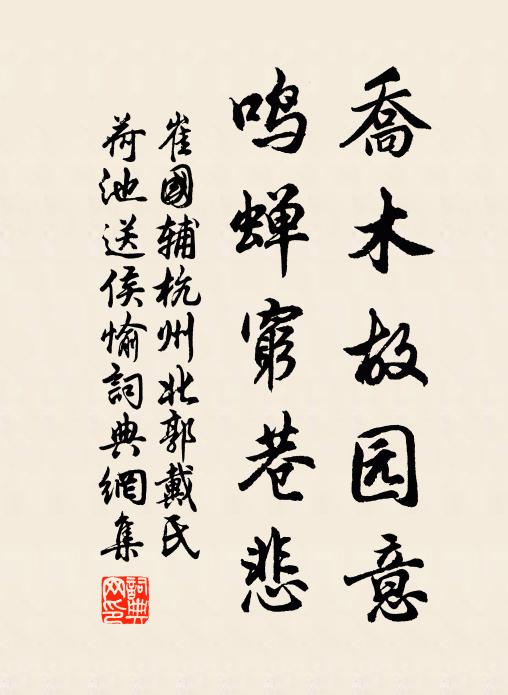 喬木故园意
鸣蝉窮巷悲
崔國辅杭州北郭戴氏
荷池送侯愉詞典網集
詞典
网印